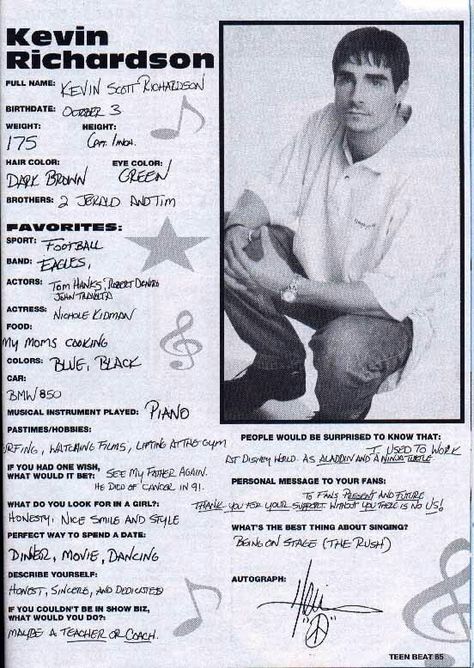 Kevin
Richardson
FULL NAME: KEVIN SCOTT RICHARDSON
BIRTHDATE: OCTOBER 3
WEIGHT: HEIGHT:
175 6FT. 1 INCH.
HAIR COLOR: EYE COLOR:
DARK BROWN GREEN
BROTHERS: 2 JERALD AND TIM
FAVORITES:
SPORT: FOOTBALL
BAND: EAGLES,
ACTORS: TOM HANKS, ROBERT DENIRO
JOHN TRAVOLTA
ACTRESS: NICHOLE KIDMAN
FOOD:
MY MOMS COOKING
COLORS: BLUE, BLACK
CAR:
BMW 850
MUSICAL INSTRUMENT PLAYED: PIANO
PASTIMES/HOBBIES:
URFING, WATCHING FILMS, LIFTING AT THE GYM
IF YOU HAD ONE WISH,
WHAT WOULD IT BE?: SEE MY FATHER AGAIN.
HE DIED OF CANCER IN 91.
WHAT DO YOU LOOK FOR IN A GIRL?:
HONESTY, NICE SMILE AND STYLE
PERFECT WAY TO SPEND A DATE:
DINNER, MOVIE, DANCING
DESCRIBE YOURSELF:
HONEST, SINCERE, AND DEDICATED
IF YOU COULDN'T BE IN SHOW BIZ,
WHAT WOULD YOU DO?:
MAYBE A TEACHER OR COACH.
PEOPLE WOULD BE SURPRISED TO KNOW THAT:
I USED TO WORK
AT DISNEY WORLD AS ALADDIN AND A NINJA TURTLE
PERSONAL MESSAGE TO YOUR FANS:
TO FANS PRESENT AND FUTURE
THANK YOU FOR YOUR SUPPORT WITHOUT YOU THERE IS NO US!
WHAT'S THE BEST THING ABOUT SINGING?
BEING ON STAGE (THE RUSH)
AUTOGRAPH:
TEEN BEAT 65